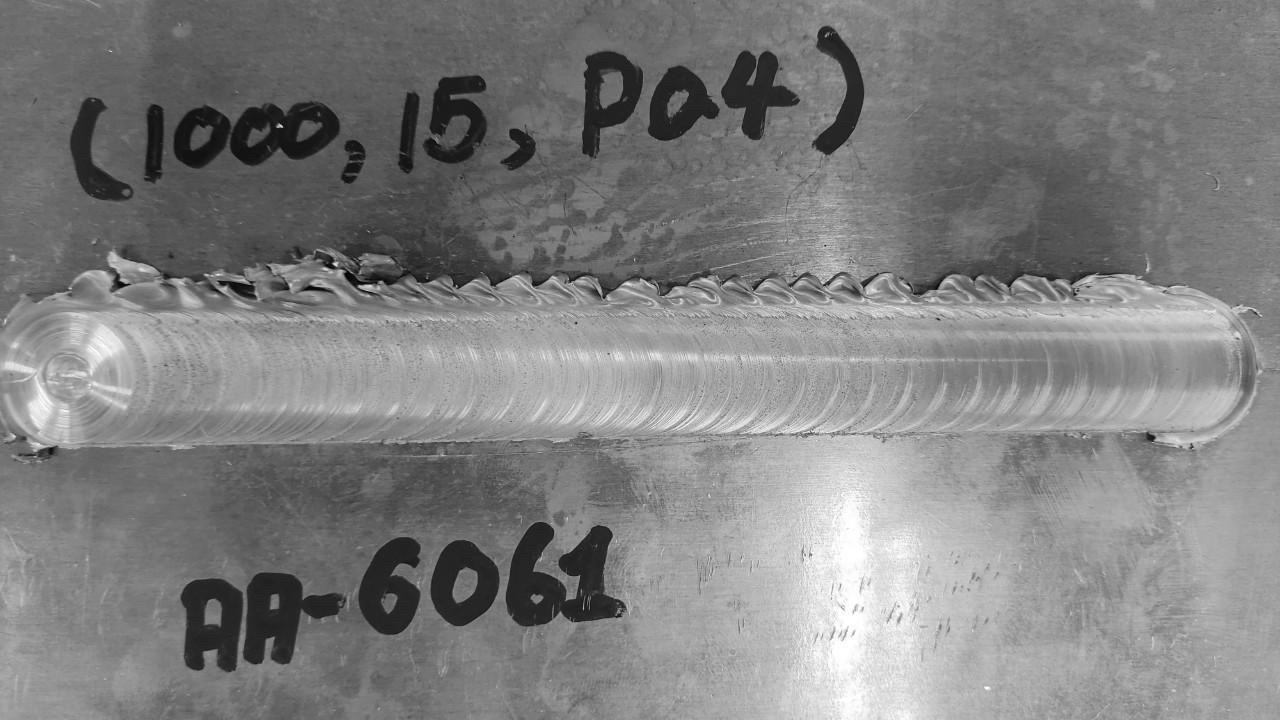 (1000, 15, Pa4)
AA-6061